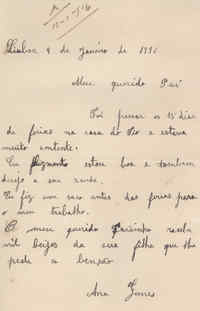 Lisboa 4 de Janeiro de 19
Meu querido Pai
Fui passar os 15 dias
de ferias na casa do Tio e estava
muito contente.
Eu estou boa e tambem
desejo a sua saude.
Eu fiz um saco antes das ferias para
o meu trabalho.
O meu querido Paizinho receba
mil beijos da sua filha que lhe
pede a benção
Ana